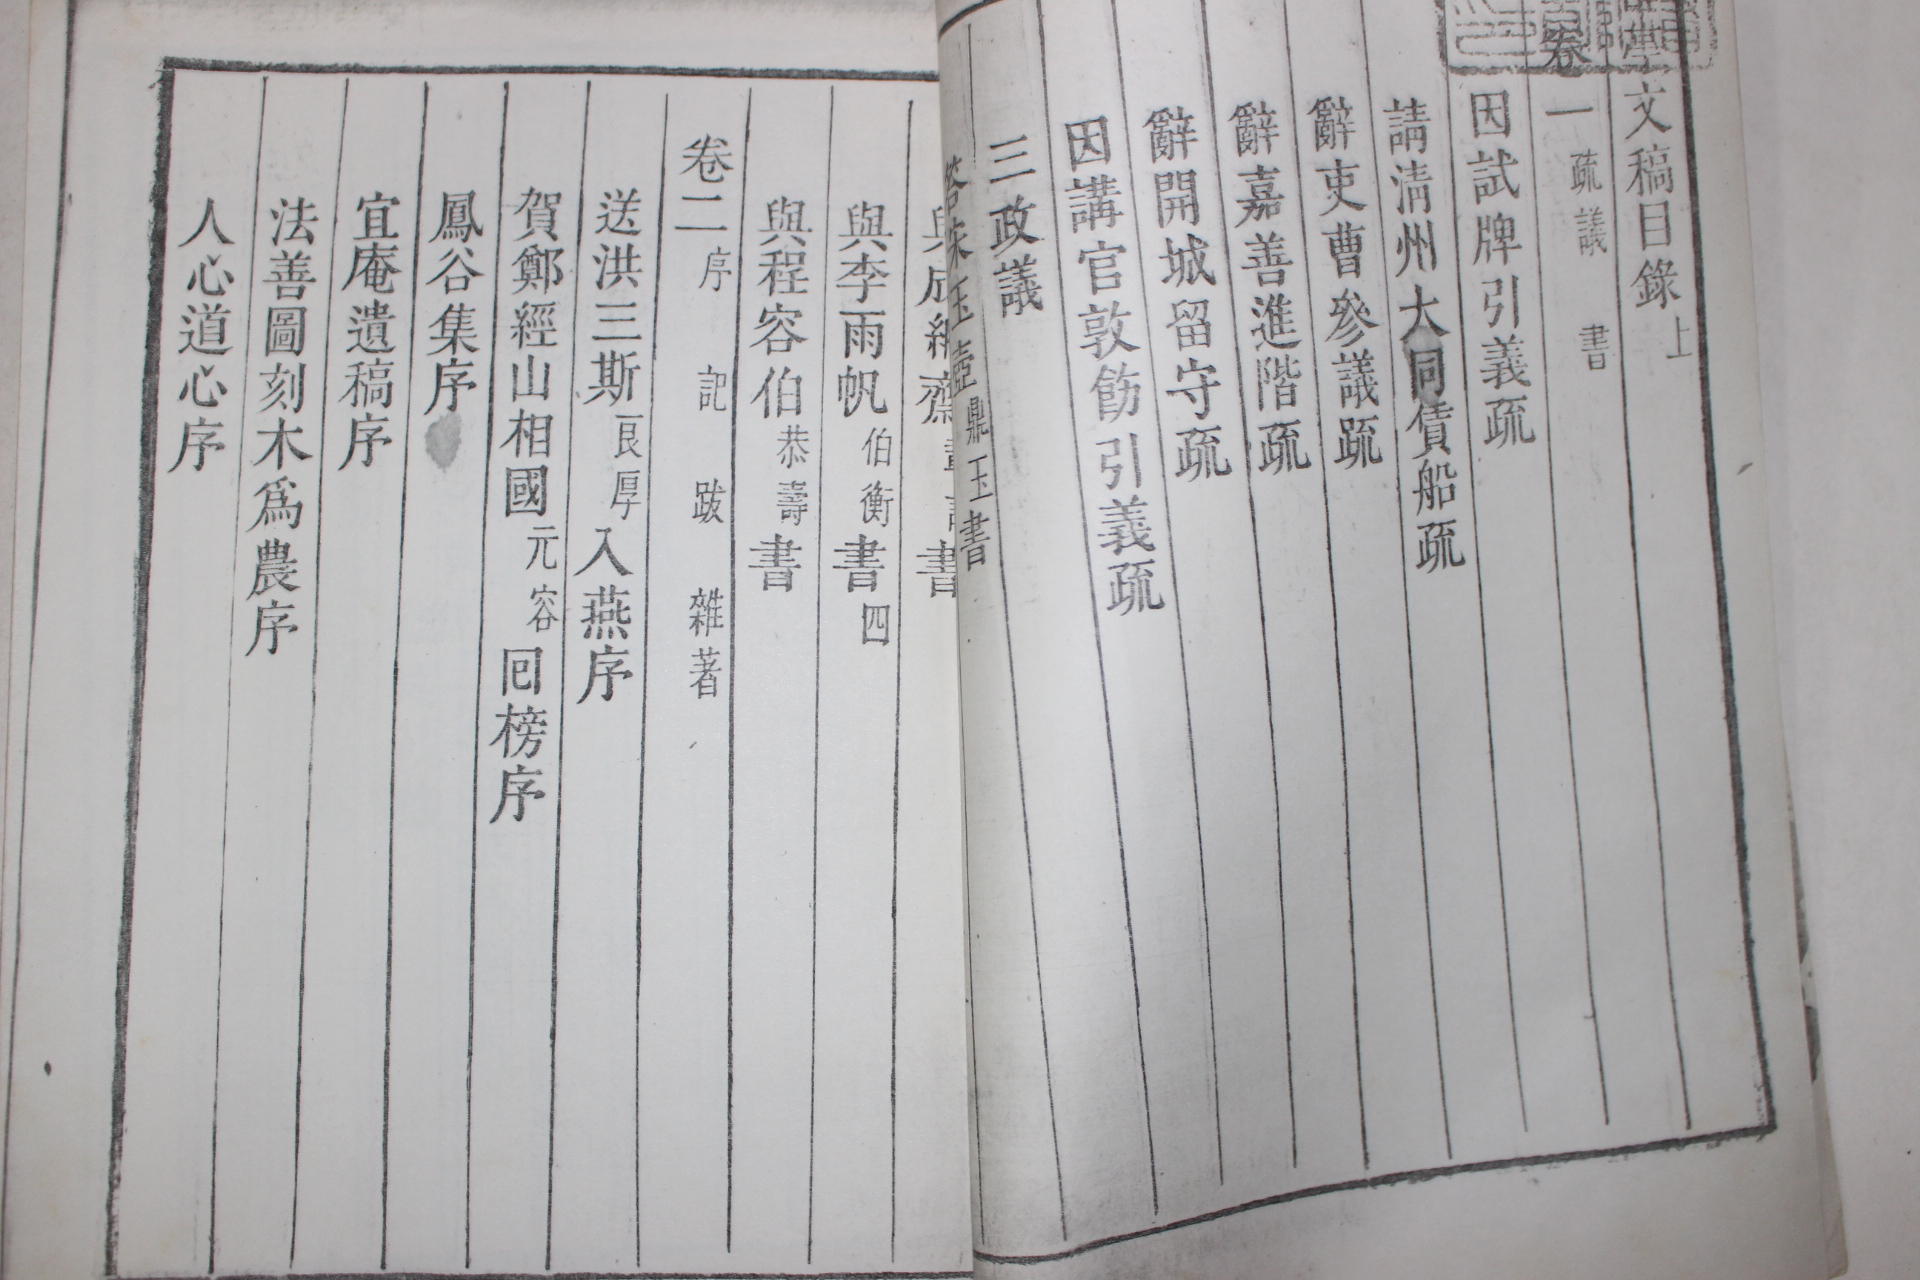 文稿目錄上
卷一 疏 議 書
因試牌引義疏
請淸州大同債船疏
辭吏曹參議疏
辭嘉善進階疏
辭開城留守疏
因講官敦飭引義疏
三政議
玉壺鼎玉書
齋書
與李雨帆伯衡書四
與程容伯恭壽書
卷二 序 記 跋 雜著
送洪三斯艮厚入燕序
賀鄭經山相國元容囘榜序
鳳谷集序
宜庵遺稿序
法善圖刻木爲農序
人心道心序